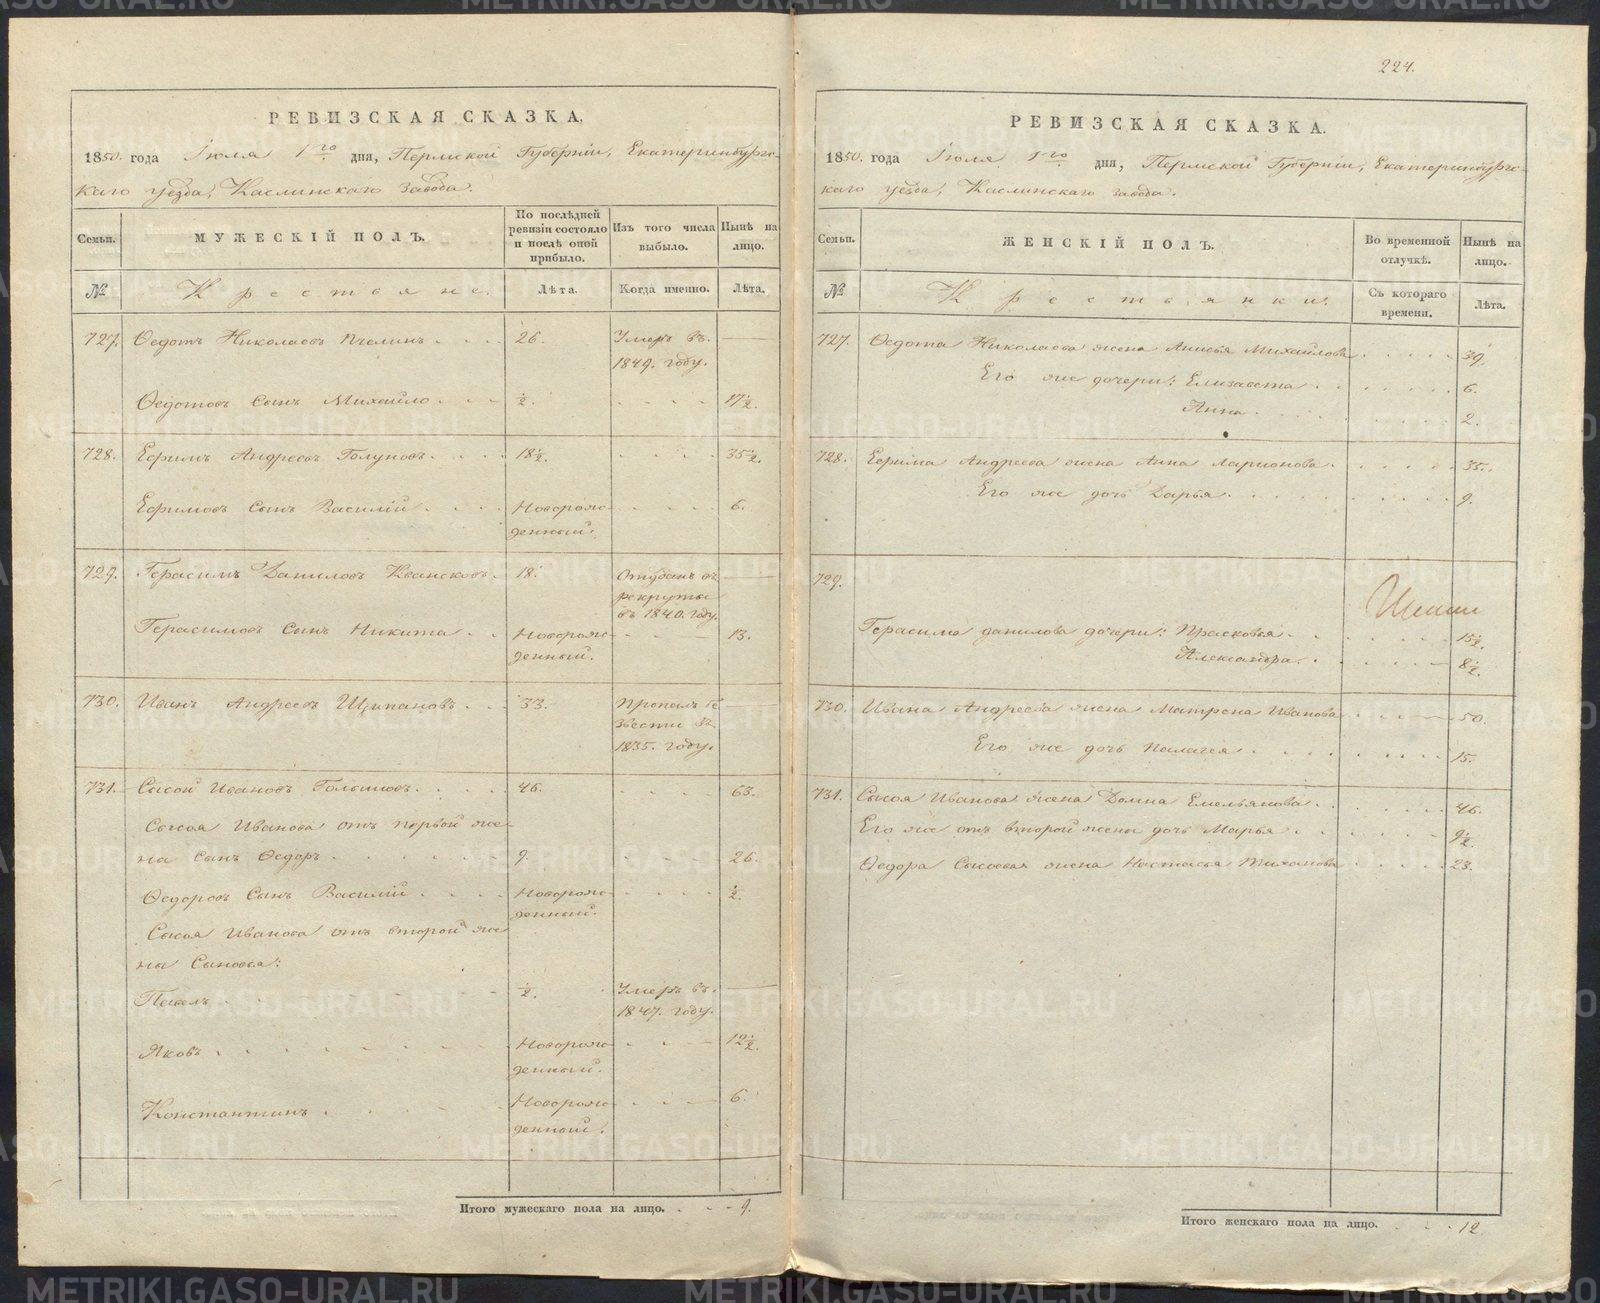 224.
РЕВИЗСКАЯ СКАЗКА.
1850. года Іюля 1го дня, Пермской Губерніи, Екатеринбургс-
каго уезда, Каслинскаго завода.
Семьи. МУЖЕСКІЙ ПОЛЪ. По послѣдней ревизіи состояло и послѣ оной прибыло. Изъ того числа выбыло. Нынѣ на лицо.
№ Крестьяне. Лѣта. Когда именно. Лѣта.
727. Ѳедотъ Николаевъ Пчелинъ 26. Умеръ въ
1849. году.
Ѳедотовъ Сынъ Михайло ½. 17½.
728. Ефимъ Андреевъ Голуновъ 18½. 35½.
Ефимовъ Сынъ Василій Новорож- 6.
денный.
729. Герасимъ Даниловъ Квансковъ 18. Отданъ въ
рекруты
въ 1840. году.
Герасимовъ Сынъ Никита Новорож- 13.
денный.
730. Иванъ Андреевъ Щипановъ 33. Пропалъ бе
звести въ
1835. году.
731. Сысой Ивановъ Голышовъ 46. 63.
Сысоя Иванова отъ первой же-
на Сынъ Ѳедоръ 9. 26.
Ѳедоровъ Сынъ Василій Новорож- ½.
денный.
Сысоя Иванова отъ второй же
ны Сыновья:
Павелъ ½. Умеръ въ
1847. году.
Яковъ Новорож- 12½.
денный.
Константинъ Новорож- 6.
денный.
Итого мужескаго пола на лицо. 9.
РЕВИЗСКАЯ СКАЗКА.
1850. года Іюля 1го дня, Пермской Губерніи, Екатеринбургс-
каго уезда, Каслинскаго завода.
Семьи. ЖЕНСКІЙ ПОЛЪ. Во временной отлучкѣ. Нынѣ на лицо.
№ Крестьянки. Съ котораго времени. Лѣта.
727. Ѳедота Николаева жена Анисья Михайлова 39.
Его же дочери: Елизавета 6.
Анна 2.
728. Ефима Андреева жена Анна Ларионова 35.
Его же дочь Дарья 9.
729.
Герасима данилова дочери: Прасковья 15½.
Александра 8½.
730. Ивана Андреева жена Матрена Иванова 50.
Его же дочь Палагея 15.
731. Сысоя Иванова жена Домна Емельянова 46.
Его же отъ второй жены дочь Марья 9½.
Ѳедора Сысоевая жена Настасья Тиханова 23.
Итого женскаго пола на лицо. 12
METRIKI.GASO-URAL.RU